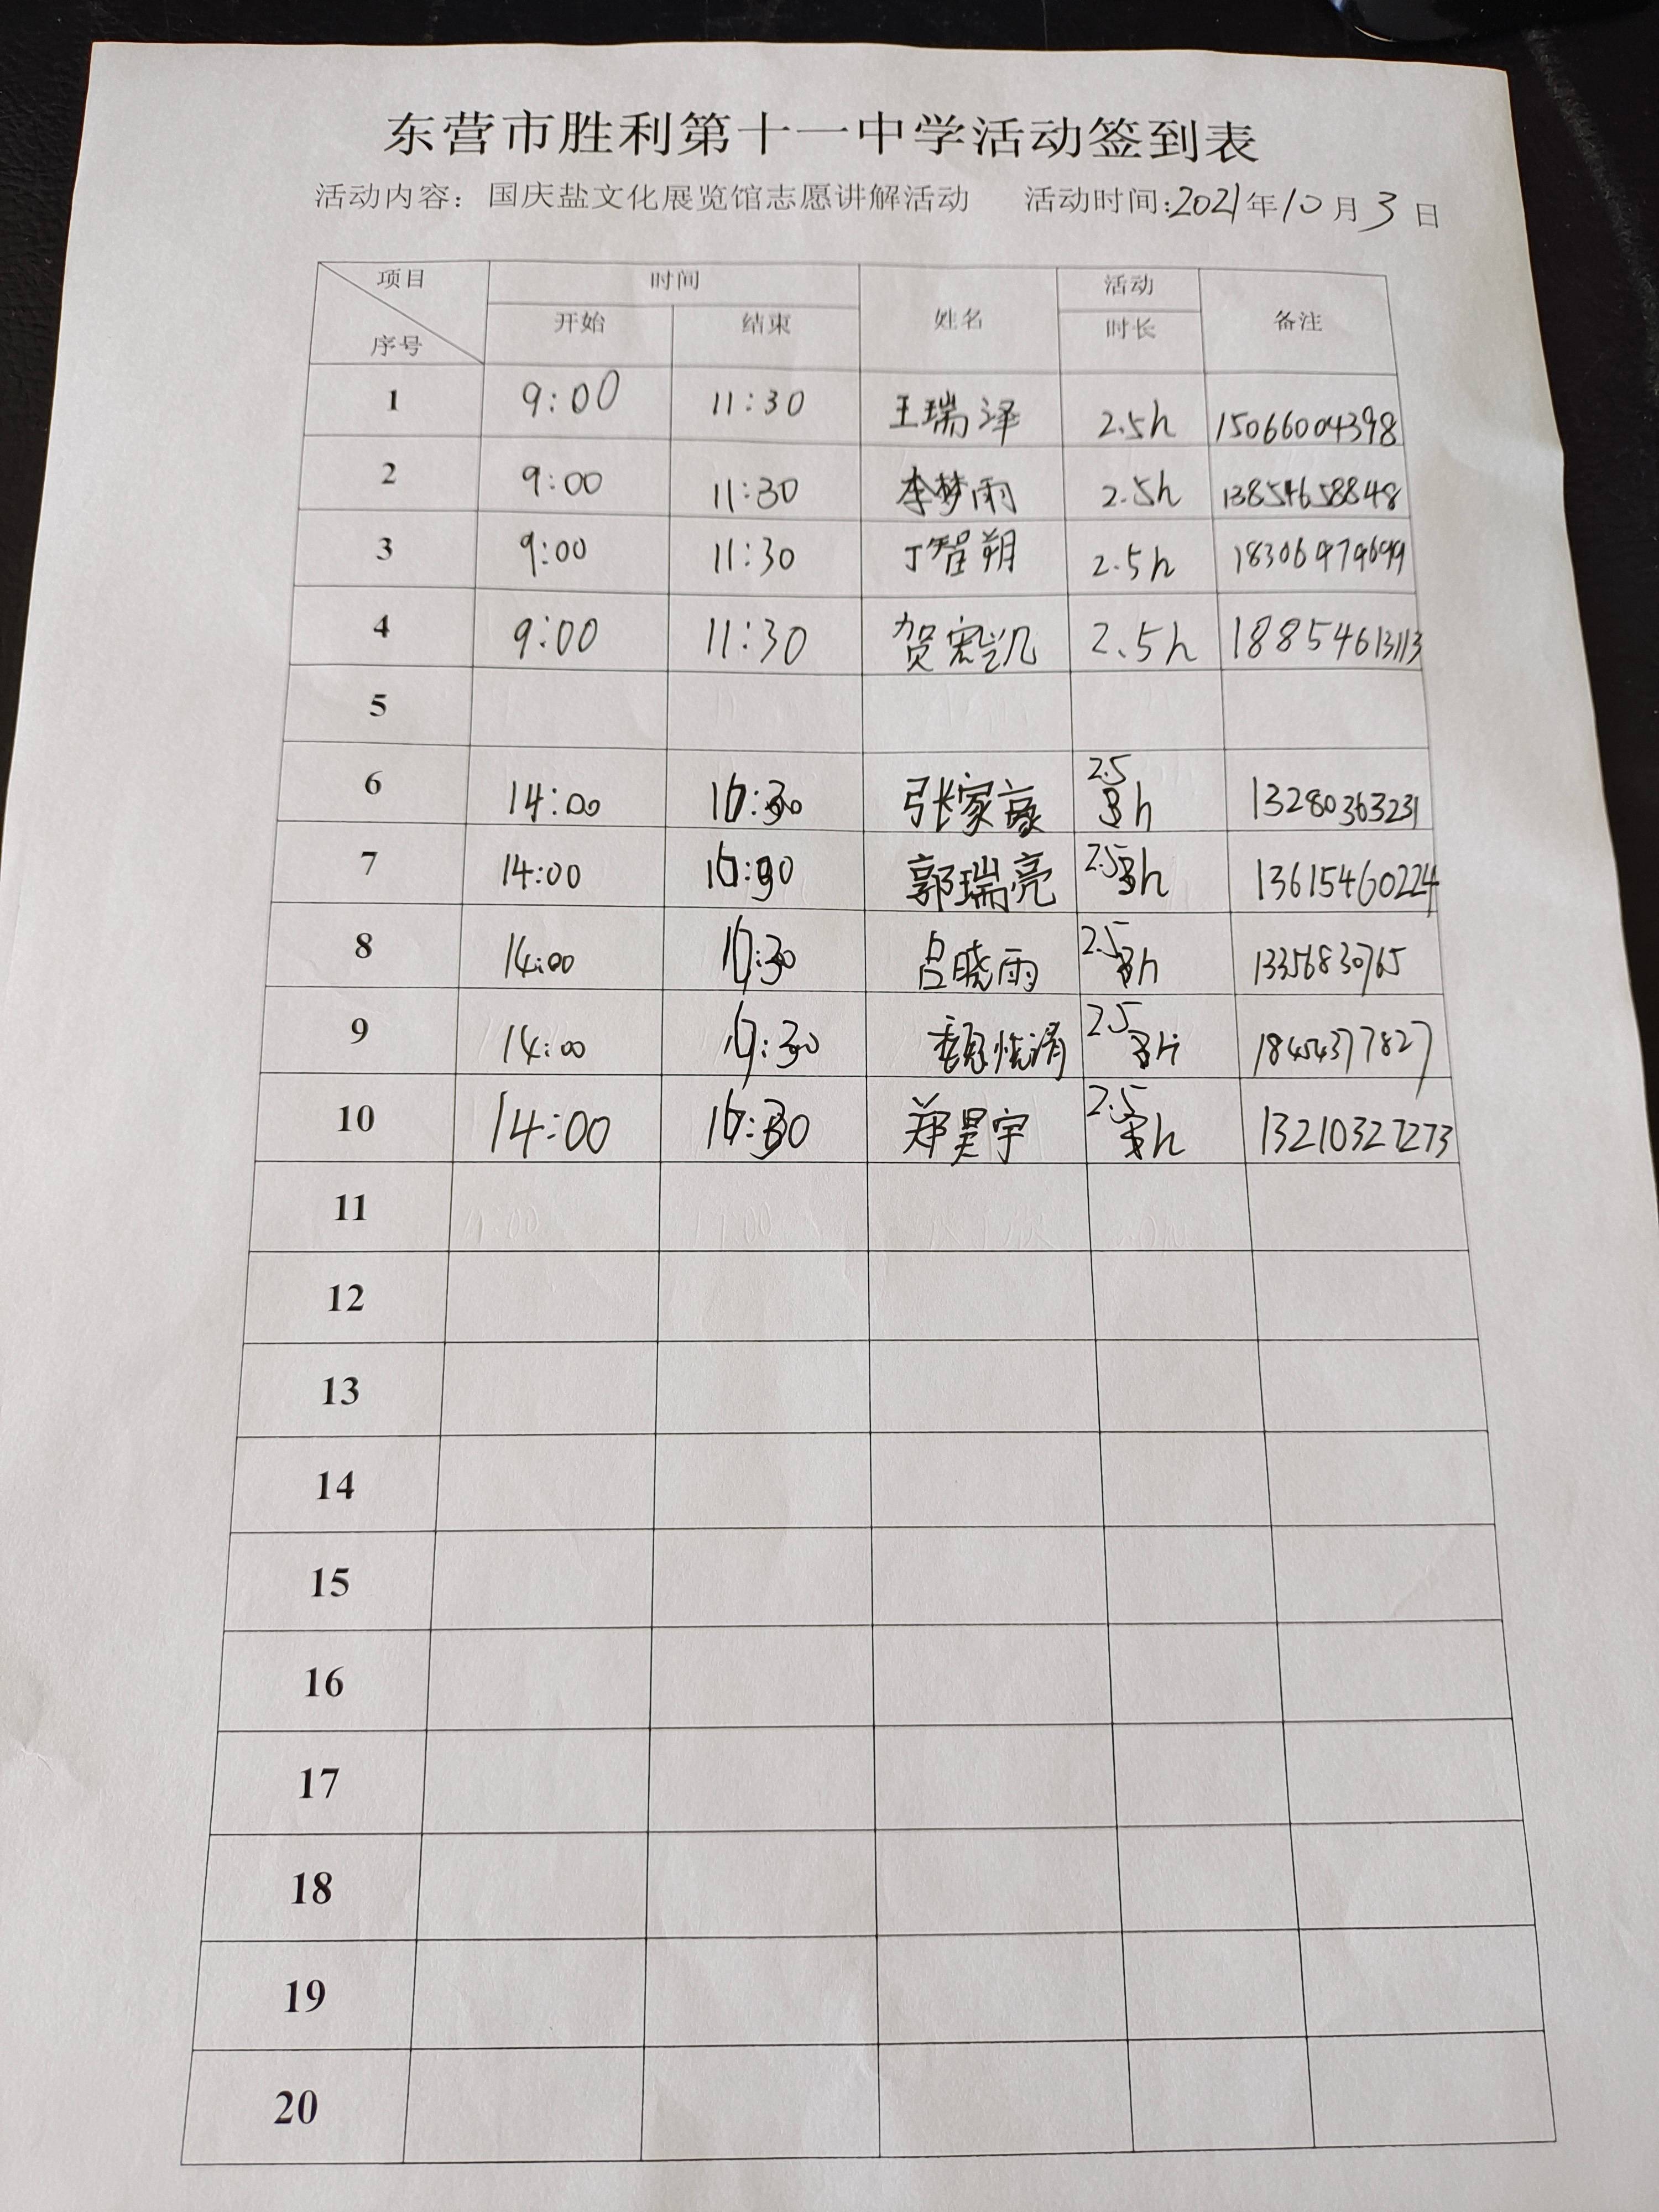 东营市胜利第十一中学活动签到表
活动内容：国庆盐文化展览馆志愿讲解活动 活动时间:2021年10月3日
项目 时间 姓名 活动 备注
序号 开始 结束 时长
1 9:00 11:30 王瑞泽 2.5h 15066004398
2 9:00 11:30 李梦雨 2.5h 13854658848
3 9:00 11:30 丁智朔 2.5h
4 9:00 11:30 贺宏凯 2.5h 18854613113
5
6 14:00 16:30 张家豪 2.5h 13280363231
7 14:00 16:30 郭瑞亮 2.5h 13615460224
8 14:00 16:30 吕晓雨 2.5h 13356830765
9 14:00 16:30 2.5h 18454377827
10 14:00 16:30 郑昊宇 2.5h 13210327273
11
12
13
14
15
16
17
18
19
20